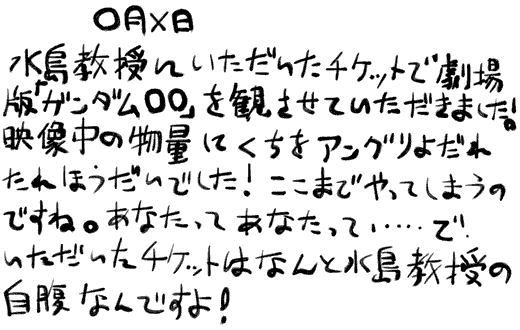 〇月×日
水島教授にいただいたチケットで劇場
版「ガンダム00」を観させていただきました!
映像中の物量にくちをアングリよだれ
たれほうだいでした!ここまでやってしまうの
ですね。あなたってあなたって……で!
いただいたチケットはなんと水島教授の
自腹なんですよ!